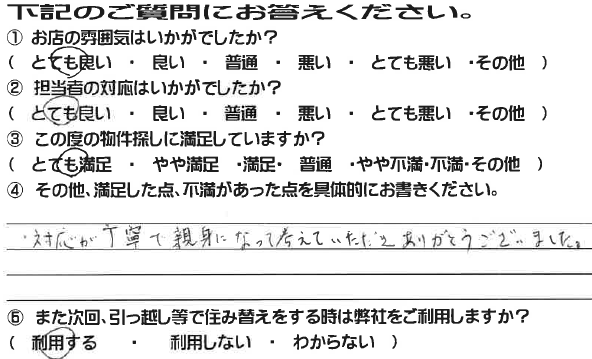 下記のご質問にお答えください。
① お店の雰囲気はいかがでしたか？
（ とても良い ・ 良い ・ 普通 ・ 悪い ・ とても悪い ・その他 ）
② 担当者の対応はいかがでしたか？
（ とても良い ・ 良い ・ 普通 ・ 悪い ・ とても悪い ・その他 ）
③ この度の物件探しに満足していますか？
（ とても満足 ・ やや満足 ・満足・ 普通 ・やや不満・不満・その他 ）
④ その他、満足した点、不満があった点を具体的にお書きください。
・対応が丁寧で親身になって考えていただきありがとうございました。
⑤ また次回、引っ越し等で住み替えをする時は弊社をご利用しますか？
（ 利用する ・ 利用しない ・ わからない ）